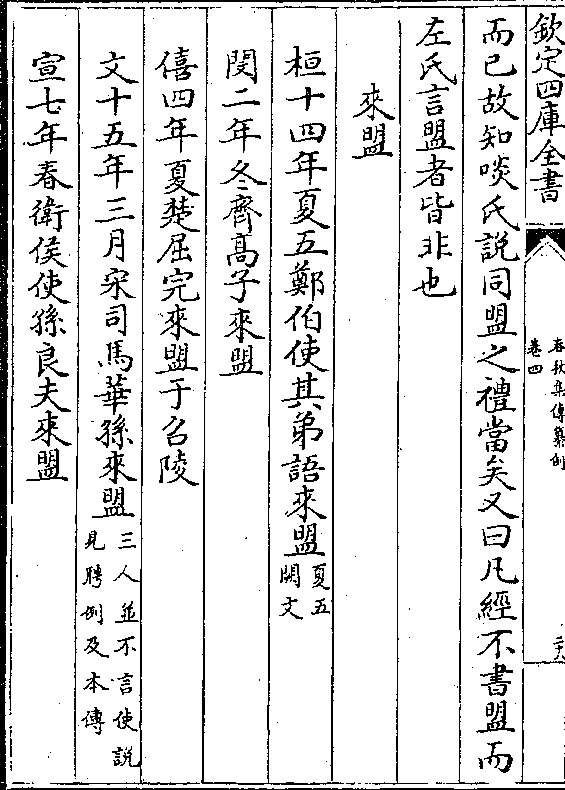 欽定四庫全書
春秋集傳纂例
卷四
而已故知啖氏說同盟之禮當矣又曰凡經不書盟而
左氏言盟者皆非也
來盟
桓十四年夏五鄭伯使其弟語來盟夏五
闕文
閔二年冬齊髙子來盟
僖四年夏楚屈完來盟于召陵
文十五年三月宋司馬華孫來盟三人並不言使說
見聘例及本傳
宣七年春衛侯使孫良夫來盟